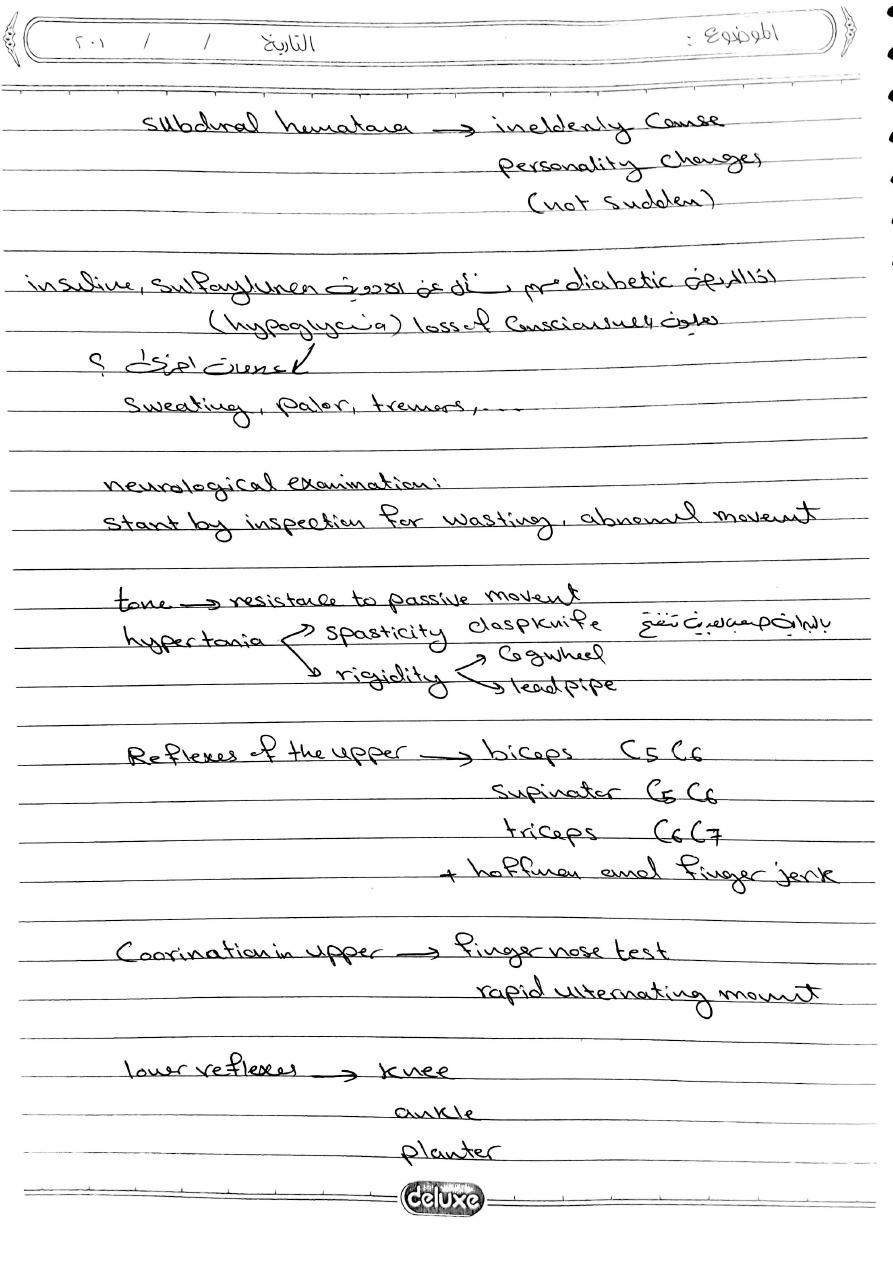 الموضوع : التاريخ / / ٢٠١
subdural hematoma → in elderly cause
personality changes
(not sudden)
اذا المريض diabetic بسأل عن الادوية insuline, sulfonylurea
(hypoglycemia) loss of consciousness
اعراض اخرى ؟
sweating, palor, tremors, ....
neurological examination:
start by inspection for wasting, abnormal movement
tone → resistance to passive movent
hypertonia → spasticity claspknife
→ rigidity → cogwheel
→ leadpipe
Reflexes of the upper → biceps C5 C6
supinator C5 C6
triceps C6 C7
+ hoffman and finger jerk
Coorination in upper → finger nose test
rapid alternating movment
lower reflexes → knee
ankle
planter
deluxe